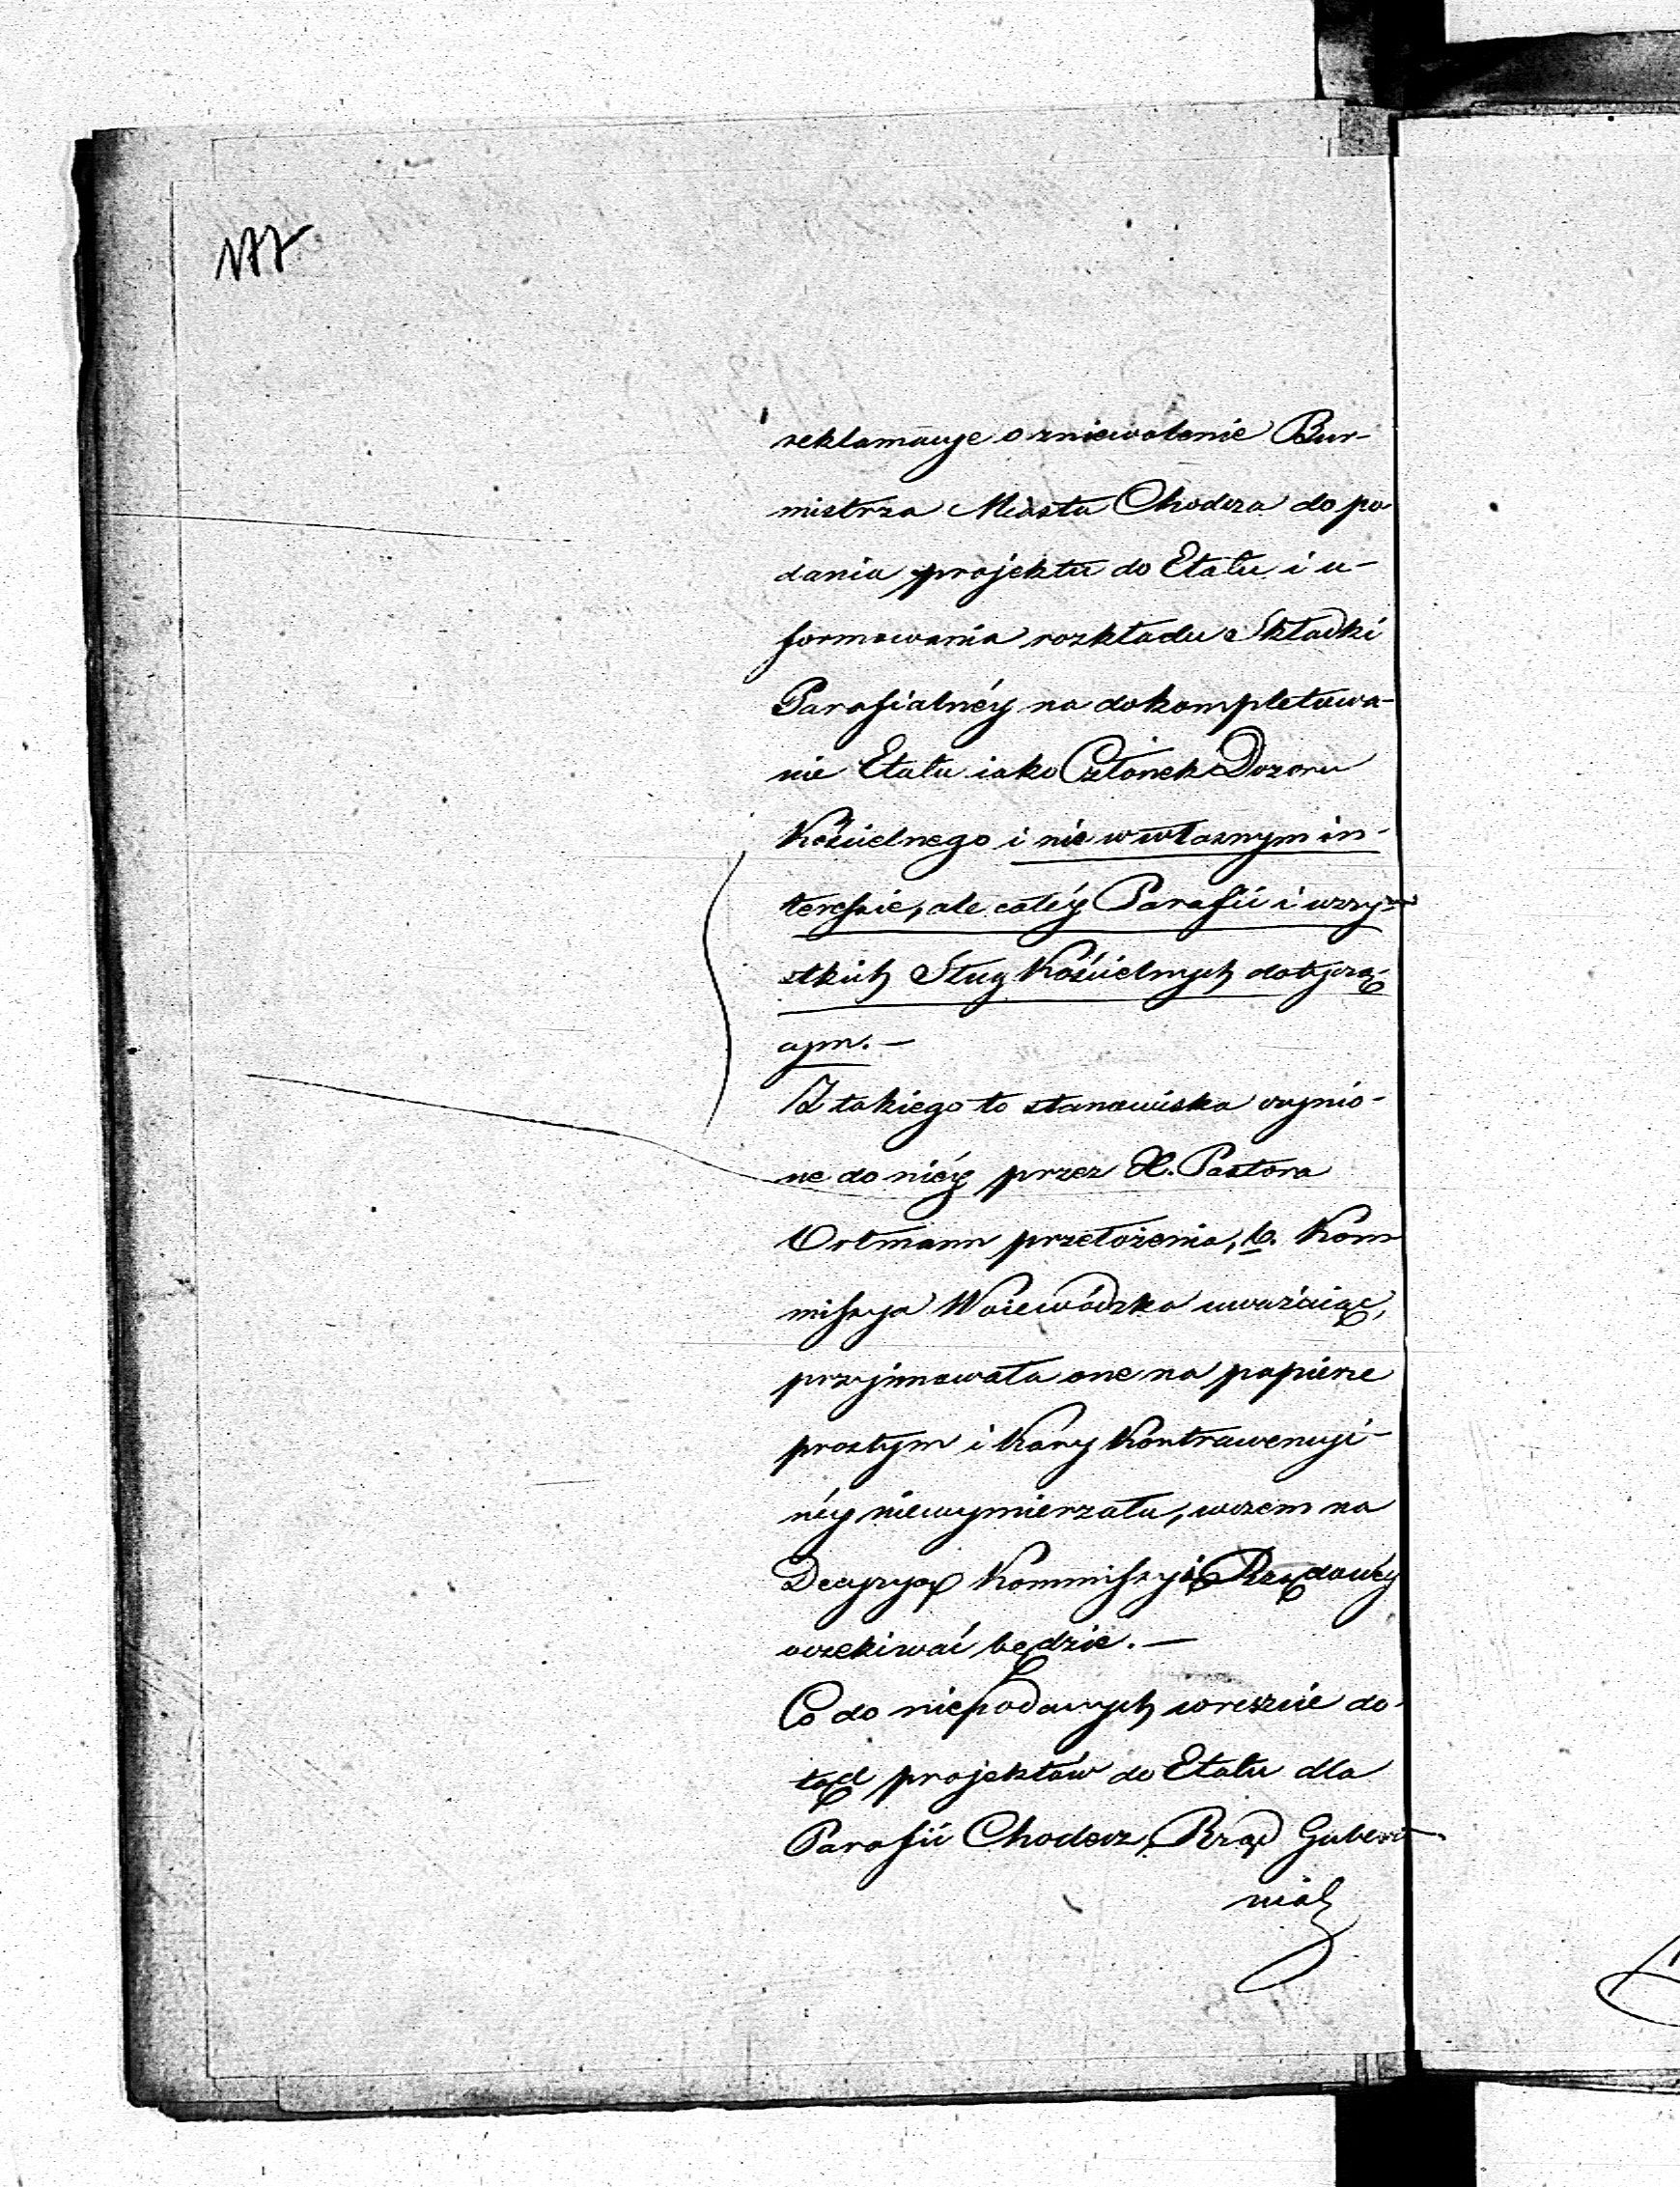 177
reklamuje o zniewolenie Bur-
mistrza Miasta Chodcza do po-
dania projektu do Etatu i u-
formowania rozkładu Składki
Parafialnéy na dokompletowa-
nie Etatu iako Członek Dozoru
Kościelnego i nie w własnym in-
teressie, ale całéy Parafii i wszy-
stkich Sług Kościelnych dotyczą-
cym. —
Z takiego to stanowiska czynio-
ne do niéy przez X. Pastora
Ortmann przełożenia, b. Kom-
missya Woiewódzka uważaiąc,
przyjmowała one na papierze
prostym i Kary Kontrawencyi-
néy niewymierzała, wczem na
Decyzyą Kommissyi Rządowéy
oczekiwać będzie. —
Co do niepodanych wreszcie do-
tąd projektów do Etatu dla
Parafii Chodecz, Rząd Guber-
nial